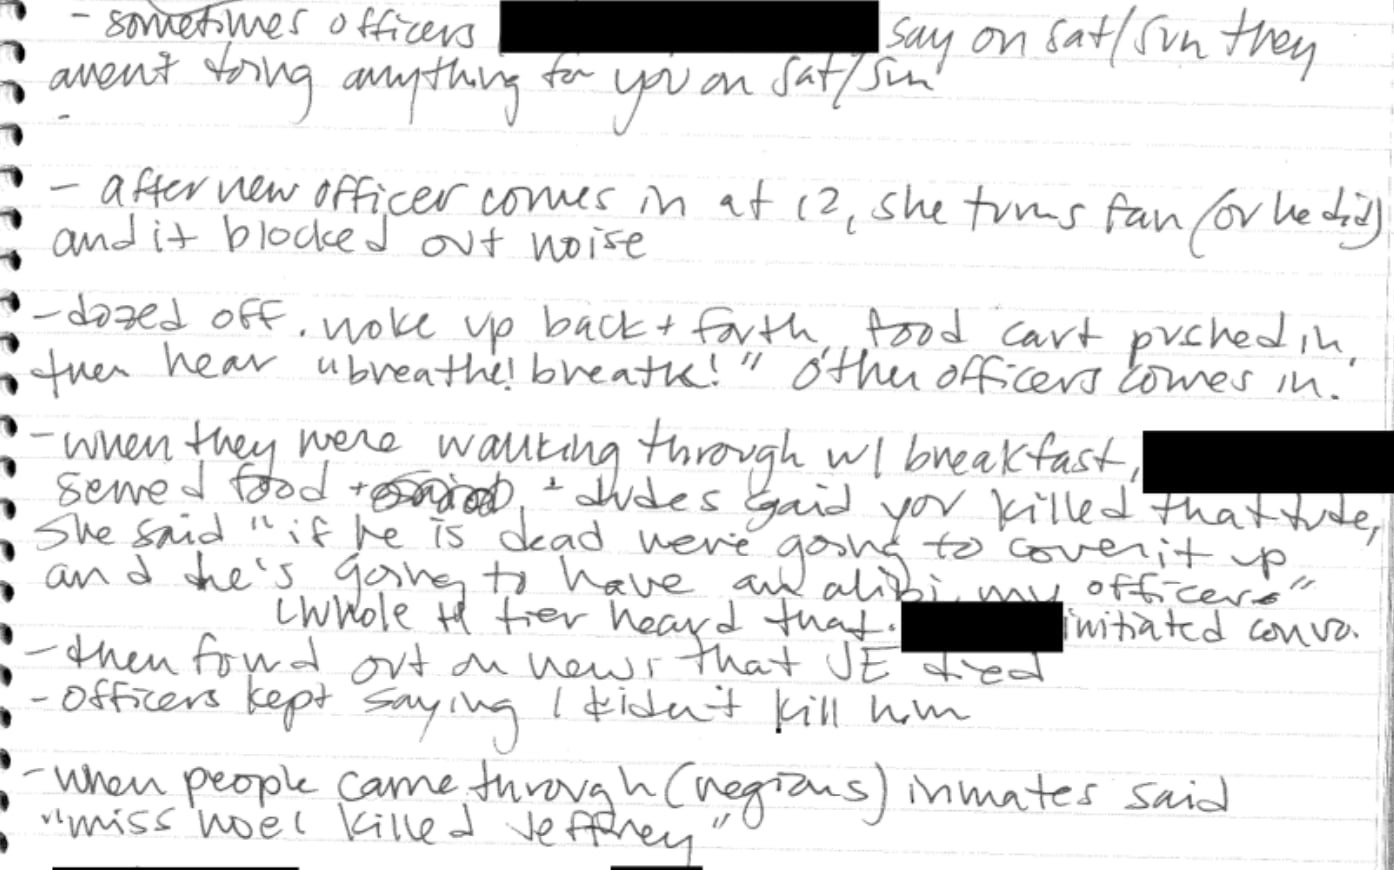 - sometimes officers say on sat/sun they
aren't doing anything for you on sat/sun
-
- after new officer comes in at 12, she turns fan (or he did)
and it blocked out noise
- dozed off. woke up back + forth, food cart pushed in,
then hear "breathe! breathe!" Other officers comes in.
- when they were walking through w/ breakfast,
served food + + dudes said you killed that dude,
she said "if he is dead we're going to cover it up
and he's going to have an alibi my officers"
Whole tier heard that. initiated convo.
- then found out on news that JE died
- officers kept saying I didn't kill him
- when people came through (regions) inmates said
"miss noel killed Jeffrey"